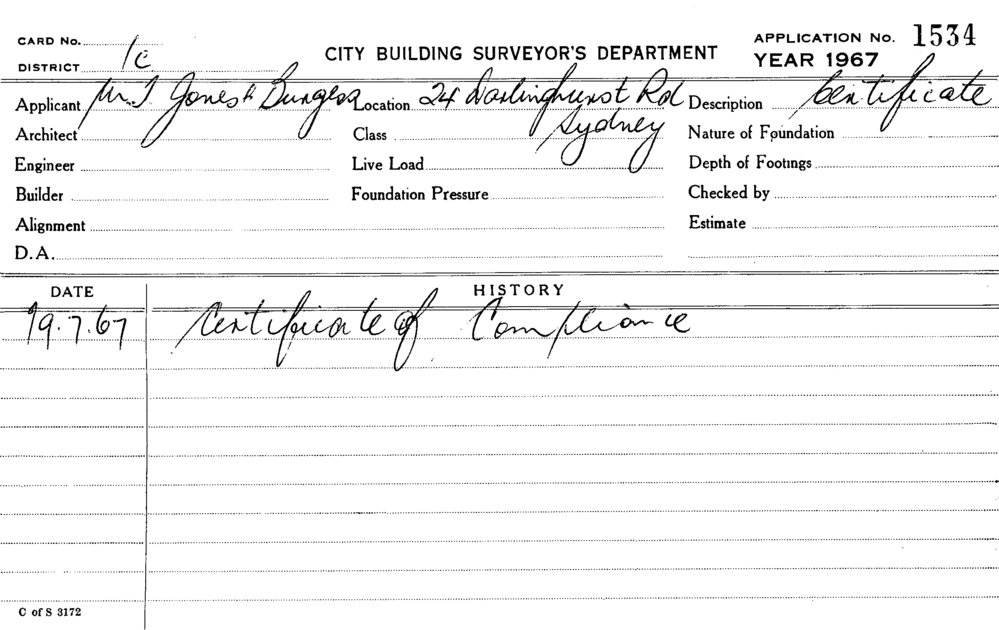 CARD No.
DISTRICT 1c
CITY BUILDING SURVEYOR'S DEPARTMENT
APPLICATION No. 1534
YEAR 1967
Applicant Jones & Burgess Location 24 Darlinghurst Rd Description Certificate
Architect Class Sydney Nature of Foundation
Engineer Live Load Depth of Footings
Builder Foundation Pressure Checked by
Alignment Estimate
D.A.
DATE HISTORY
19.7.67 Certificate of Compliance
C of S 3172